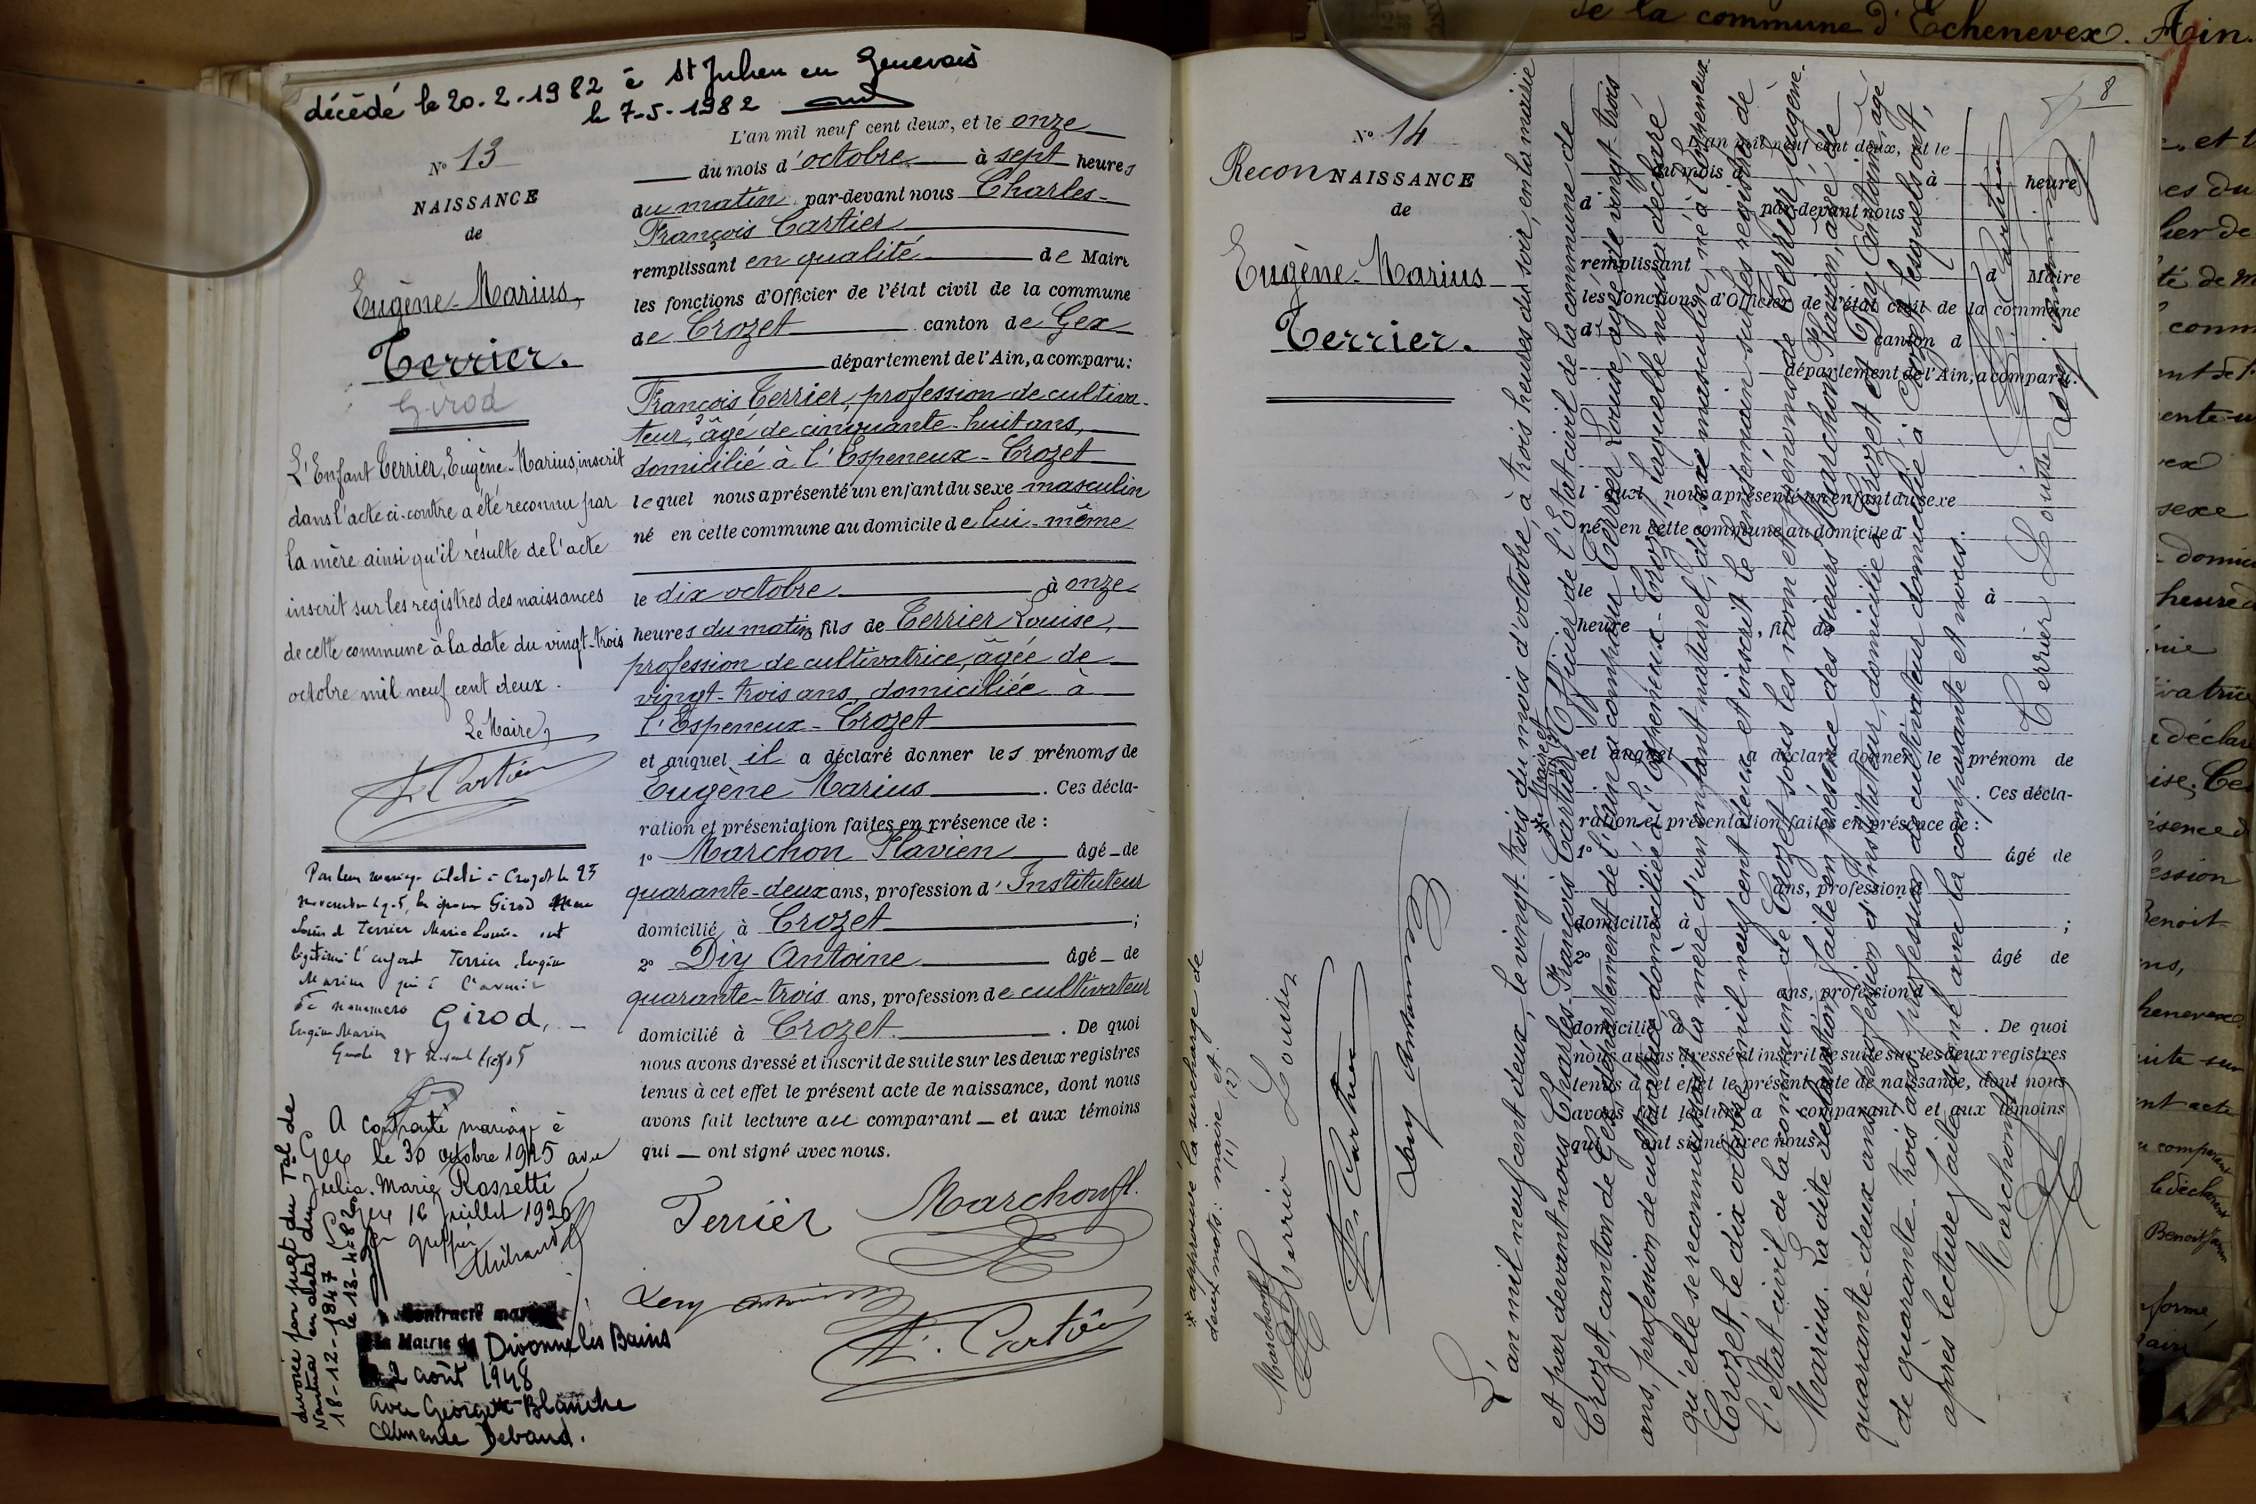 décédé le 20-2-1982 à St Julien en Genevois
le 7-5-1982
N° 13
NAISSANCE
de
Eugène-Marius,
Terrier.
Girod
L'Enfant Terrier, Eugène-Marius, inscrit
dans l'acte ci-contre a été reconnu par
la mère ainsi qu'il résulte de l'acte
inscrit sur les registres des naissances
de cette commune à la date du vingt-trois
octobre mil neuf cent deux.
Le Maire,
F. Cartier
Par leur mariage célébré à Crozet le 25
novembre 1905, les époux Girod
Louis et Terrier Marie Louise ont
légitimé l'enfant Terrier Eugène
Marius qui à l'avenir
se nommera Girod,
Eugène Marius
1905
A contracté mariage à
Gex le 30 octobre 1925 avec
Julia-Marie Rossetti
Gex 16 juillet 1926
greffier
divorcé par jugt du Tal de
Nantua en date du
18-12-1947
le 13-4-82
Contracté mariage
à la Mairie de Divonne les Bains
le 2 août 1948
avec Georgette-Blanche
Clémence Debaud.
L'an mil neuf cent deux, et le onze
du mois d'octobre à sept heures
du matin par-devant nous Charles-
François Cartier
remplissant en qualité de Maire
les fonctions d'Officier de l'état civil de la commune
de Crozet canton de Gex
département de l'Ain, a comparu:
François Terrier, profession de cultiva-
teur, âgé de cinquante-huit ans,
domicilié à l'Espeneux-Crozet
lequel nous a présenté un enfant du sexe masculin
né en cette commune au domicile de lui-même
le dix octobre à onze
heures du matin, fils de Terrier Louise,
profession de cultivatrice, âgée de
vingt-trois ans, domiciliée à
l'Espeneux-Crozet
et auquel il a déclaré donner les prénoms de
Eugène Marius. Ces décla-
ration et présentation faites en présence de :
1° Marchon Flavien âgé de
quarante-deux ans, profession d'Instituteur
domicilié à Crozet ;
2° Diy Antoine âgé de
quarante-trois ans, profession de cultivateur
domicilié à Crozet. De quoi
nous avons dressé et inscrit de suite sur les deux registres
tenus à cet effet le présent acte de naissance, dont nous
avons fait lecture au comparant et aux témoins
qui ont signé avec nous.
Terrier Marchon fl.
F. Cartier
de la commune d'Echenevex. Ain.
8
N° 14
ReconNAISSANCE
de
Eugène-Marius
Terrier.
L'an mil neuf cent deux, et le
du mois d à heure
d par-devant nous
remplissant d Maire
les fonctions d'Officier de l'état civil de la commune
d canton d
département de l'Ain, a comparu:
l quel nous a présenté un enfant du sexe
né en cette commune au domicile d
le à
heure fil de
et auquel a déclaré donner le prénom de
. Ces décla-
ration et présentation faites en présence de :
1° âgé de
ans, profession d
domicilié à ;
2° âgé de
ans, profession d
domicilié à . De quoi
nous avons dressé et inscrit de suite sur les deux registres
tenus à cet effet le présent acte de naissance, dont nous
avons fait lecture a comparant et aux témoins
qui ont signé avec nous.
L'an mil neuf cent deux, le vingt-trois du mois d'octobre, à trois heures du soir, en la mairie
et par devant nous Charles-François Cartier * Officier de l'Etat civil de la commune de
* Maire et
Crozet, canton de Gex, département de l'Ain a comparu Terrier Louise, âgée de vingt-trois
ans, profession de cultivatrice, domiciliée à l'Espeneux-Crozet, laquelle nous a déclaré
qu'elle se reconnaissait la mère d'un enfant naturel, du sexe masculin, né à l'Espeneux
Crozet, le dix octobre mil neuf cent deux et inscrit le lendemain sur les registres de
l'état civil de la commune de Crozet sous les nom et prénoms de Terrier, Eugène-
Marius. La dite déclaration faite en présence des sieurs Marchon Flavien, âgé de
quarante-deux ans, profession d'instituteur, domicilié à Crozet et Diy Antoine, âgé
de quarante-trois ans, profession de cultivateur domicilié à Crozet, lesquels ont,
après lecture faite, signé avec la comparante et nous.
Marchon fl Terrier Louise F. Cartier
* approuvé la surcharge de
deux mots: maire et.
(1) (2)
Marchon fl Terrier Louise
F. Cartier